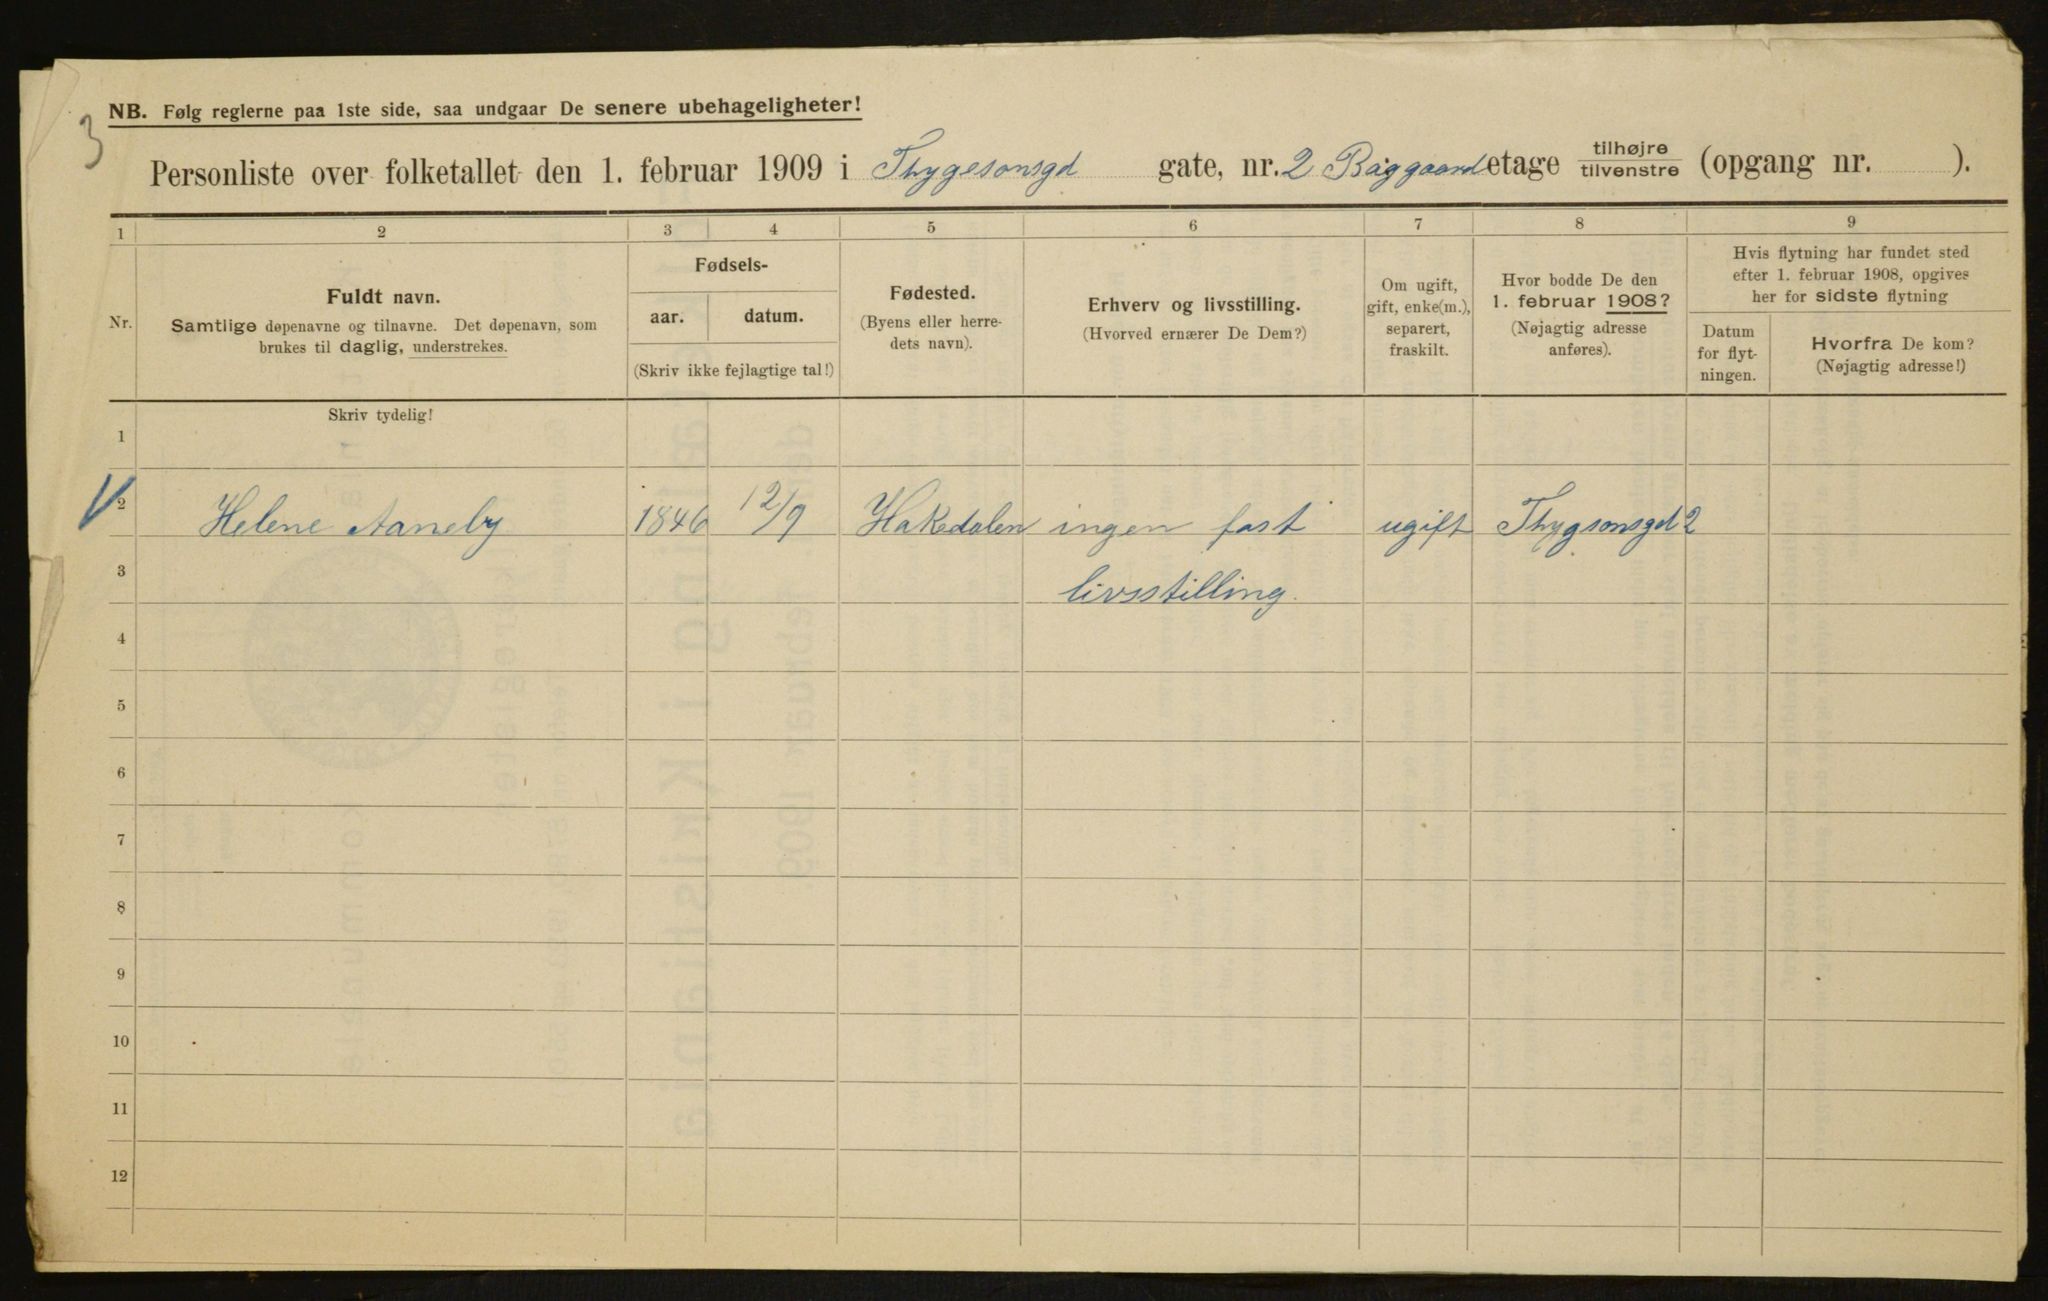 3
NB. Følg reglerne paa 1ste side, saa undgaar De senere ubehageligheter!
Personliste over folketallet den 1. februar 1909 i Thygesonsgd gate, nr. 2 Baggaard etage tilhøjre tilvenstre (opgang nr. ).
1 2 3 4 5 6 7 8 9
Nr.
Fuldt navn.
Samtlige døpenavne og tilnavne. Det døpenavn, som
brukes til daglig, understrekes.
Fødsels-
aar. datum.
(Skriv ikke fejlagtige tal!)
Fødested.
(Byens eller herre-
dets navn).
Erhverv og livsstilling.
(Hvorved ernærer De Dem?)
Om ugift,
gift, enke(m.),
separert,
fraskilt.
Hvor bodde De den
1. februar 1908?
(Nøjagtig adresse
anføres).
Hvis flytning har fundet sted
efter 1. februar 1908, opgives
her for sidste flytning
Datum
for flyt-
ningen.
Hvorfra De kom?
(Nøjagtig adresse!)
Skriv tydelig!
1
2 Helene Aaneby 1846 12/9 Hakedalen ingen fast ugift Thygsonsgd 2
3 livsstilling.
4
5
6
7
8
9
10
11
12